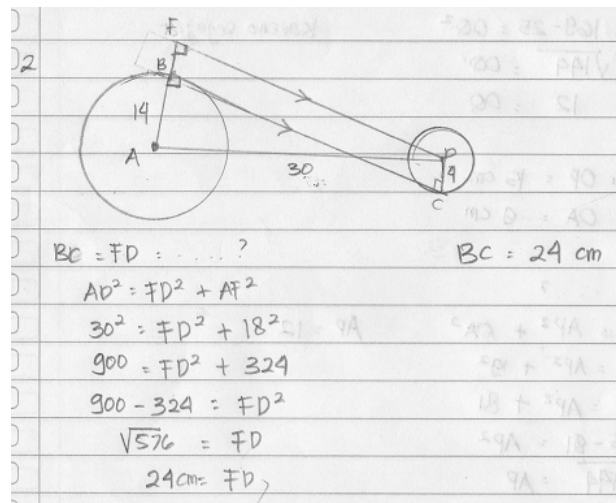 2
F
B
14
A
30
D
4
C
BC = FD = .....?
BC = 24 cm
AD² = FD² + AF²
30² = FD² + 18²
900 = FD² + 324
900 - 324 = FD²
√576 = FD
24cm = FD